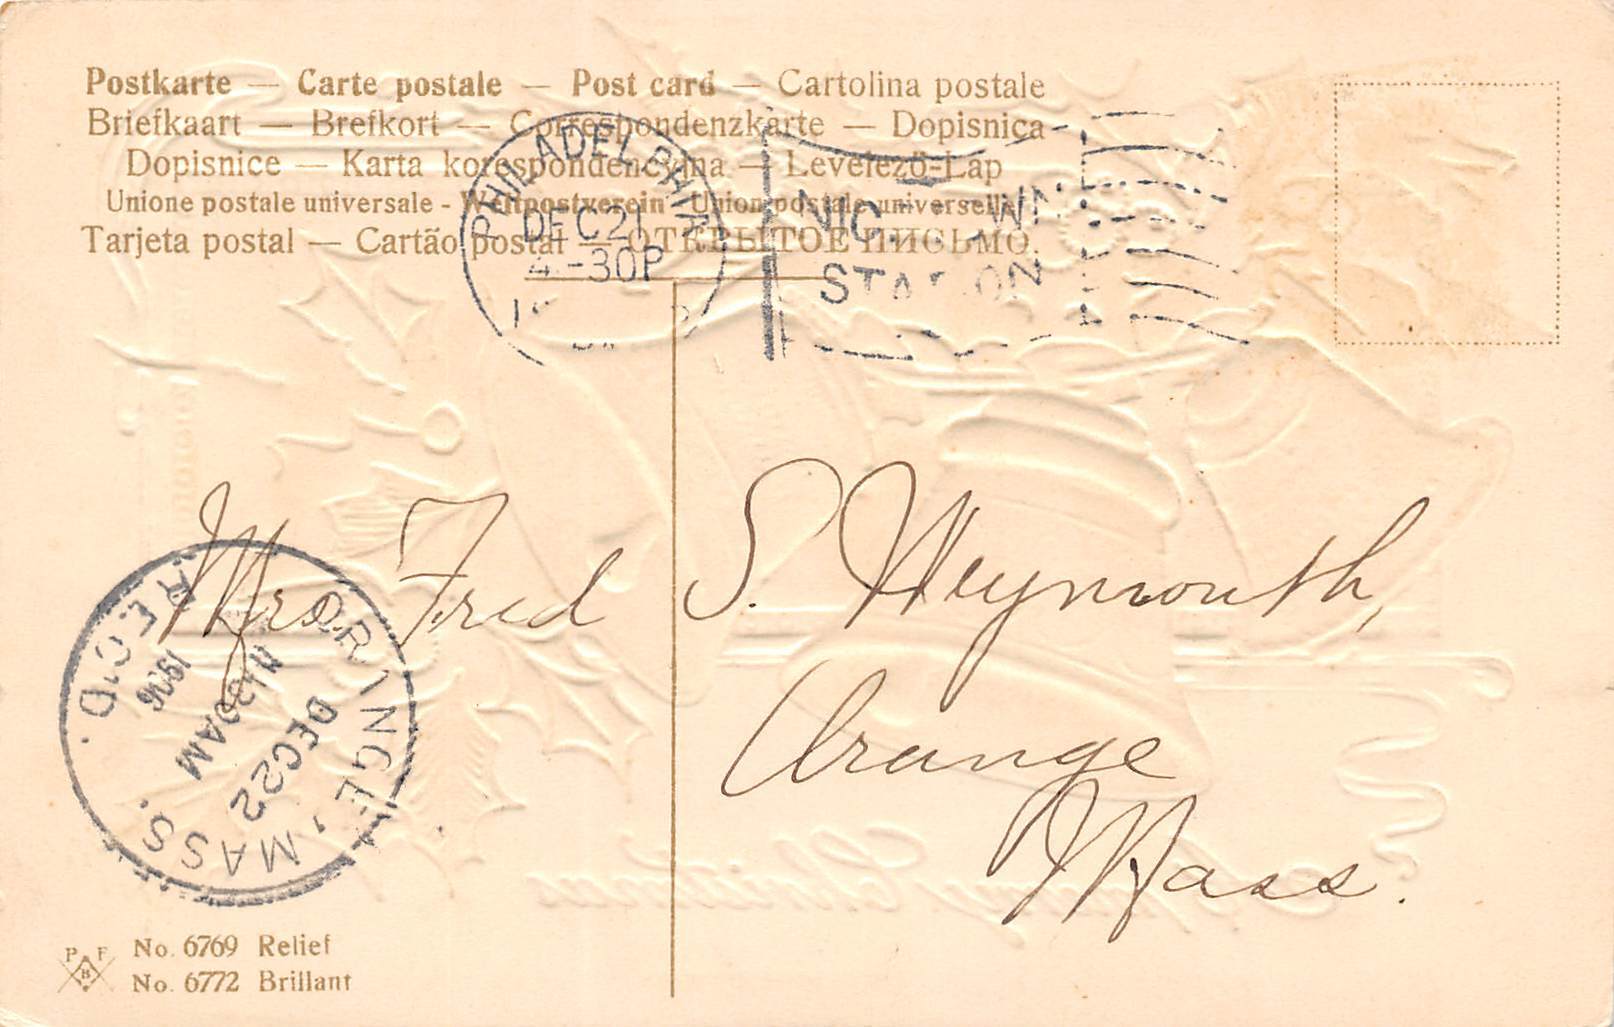 Postkarte — Carte postale — Post card — Cartolina postale
Briefkaart — Brefkort — Correspondenzkarte — Dopisnica
Dopisnice — Karta korespondencyjna — Levelező-Lap
Unione postale universale - Weltpostverein - Union postale universelle
Tarjeta postal — Cartão postal — ОТКРЫТОЕ ПИСЬМО.
PHILADELPHIA
DEC 21
-30P
STATION
Mrs. Fred S. Weymouth,
Orange
Mass.
ORANGE, MASS.
DEC 22
11-30AM
1906
REC'D.
Christmas
P F
B
No. 6769 Relief
No. 6772 Brillant